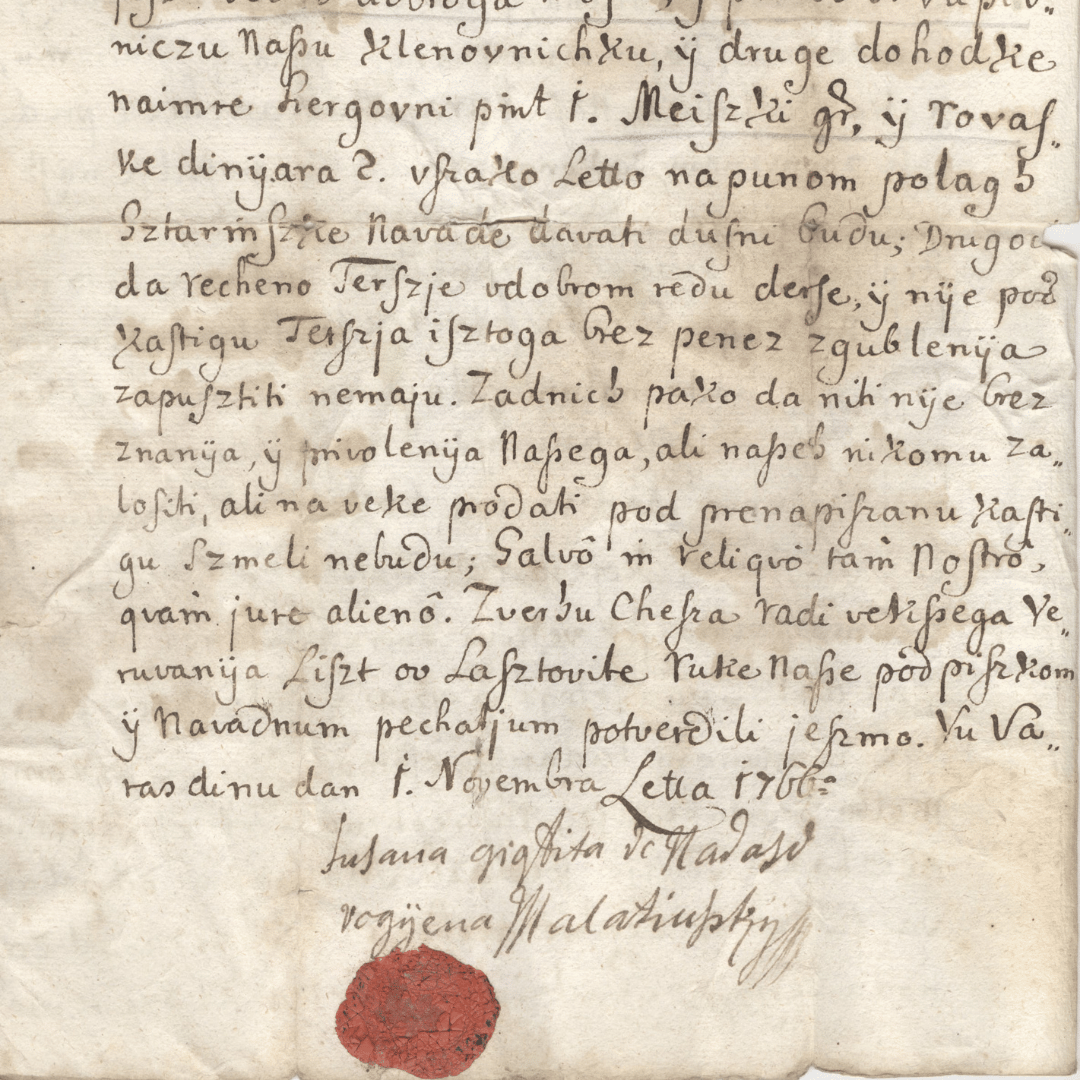 niczu Naßu Klenovnichku, ÿ druge dohodke
naimre hergovni pint 1. Meiszki gr. ÿ rovas„
ke dinÿara 2. vszako Letto na punom polag h
Sztarinszke Navade davati dusni budu; Drugoc
da recheno Terszje v dobrom redu derse, ÿ nÿe pod
kastigu Terszja isztoga brez penez zgublenÿa
zapusztiti nemaju. Zadnich pako da niti nÿe brez
znanÿa, ÿ privolenÿa Naßega, ali naßeh nikomu za„
lositi, ali na veke prodati pod prenapiszanu kasti„
gu Szmeli nebudu; Salvô in reliqvô tam̀ Nostrô,
qvam̀ jure alienô. Zverhu Chesza radi vekßega Ve„
ruvanÿa Liszt ov Lasztovite Ruke Naße pôdpiszkom
ÿ Navadnum pechatjum potverdili jeszmo. Vu Va„
rasdinu dan 1. Novembra Letta 1766
Susana de Nadasd
rogÿena Malatinßkÿ